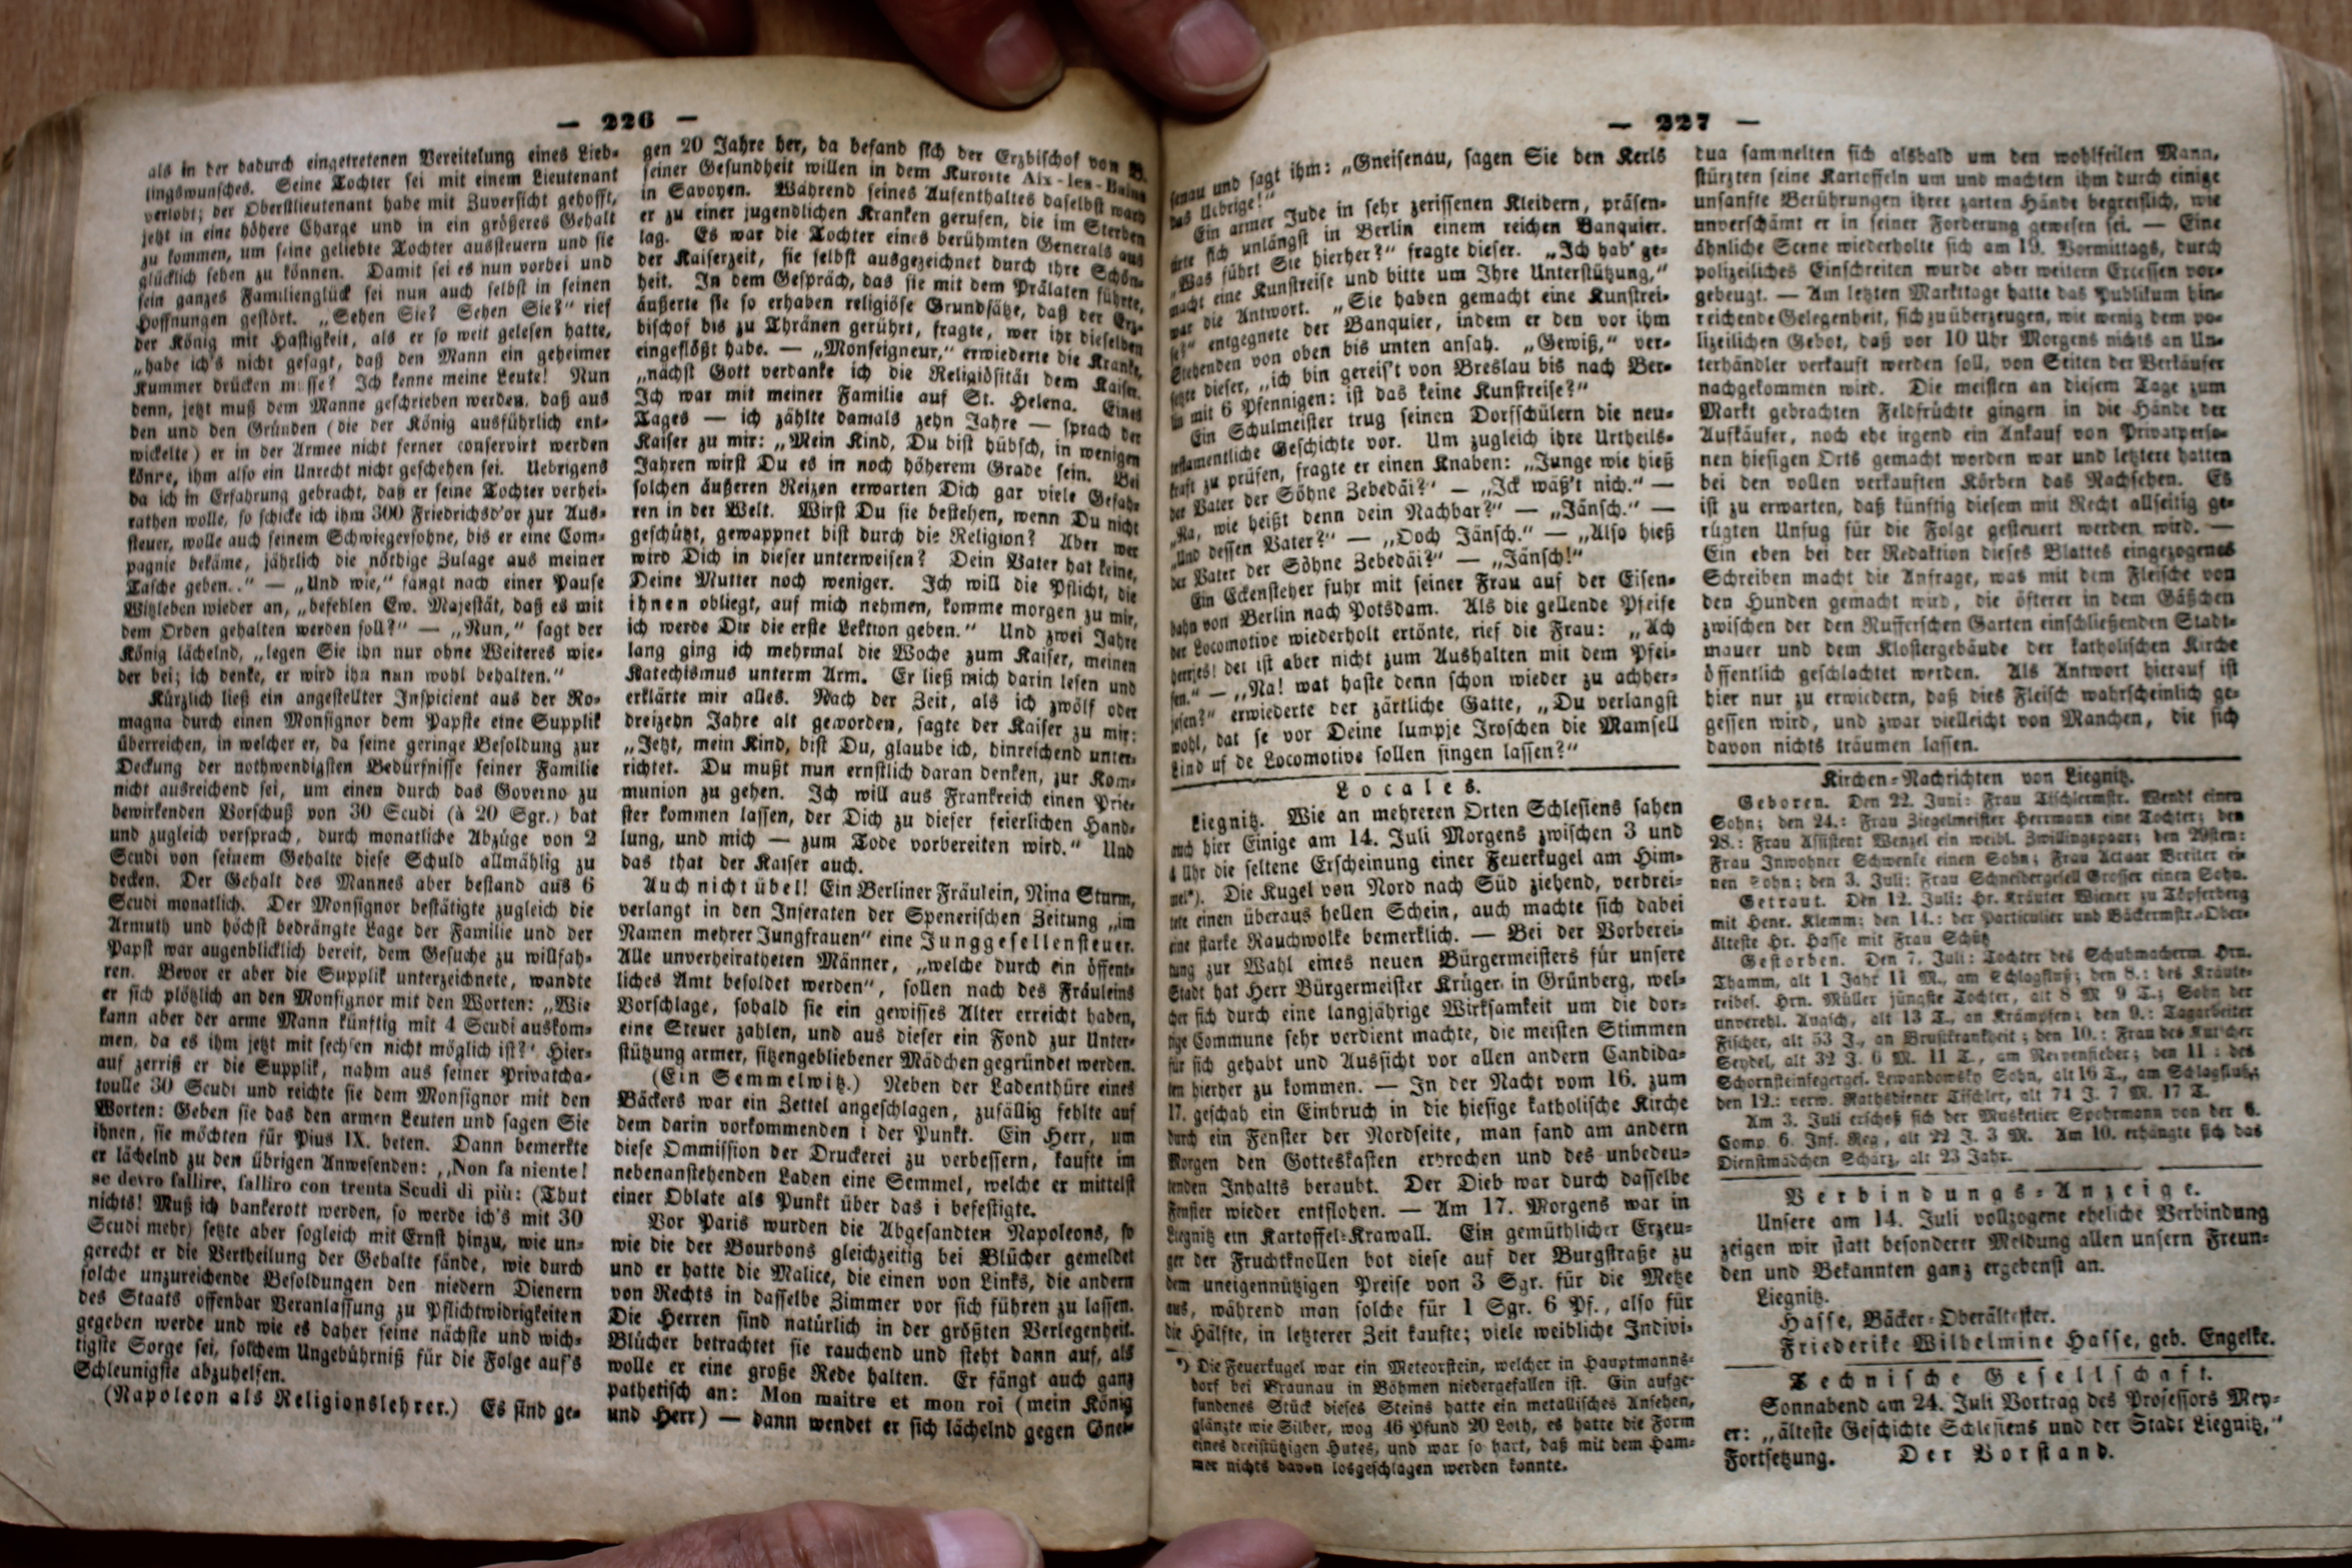 — 226 —
als in der dadurch eingetretenen Vereitelung eines Lieb-
lingswunsches. Seine Tochter sei mit einem Lieutenant
verlobt; der Oberstlieutenant habe mit Zuversicht gehofft,
jetzt in eine höhere Charge und in ein größeres Gehalt
zu kommen, um seine geliebte Tochter aussteuern und sie
glücklich sehen zu können. Damit sei es nun vorbei und
sein ganzes Familienglück sei nun auch selbst in seinen
Hoffnungen gestört. „Sehen Sie? Sehen Sie?“ rief
der König mit Hastigkeit, als er so weit gelesen hatte,
„habe ich's nicht gesagt, daß den Mann ein geheimer
Kummer drücken müsse? Ich kenne meine Leute! Nun
denn, jetzt muß dem Manne geschrieben werden, daß aus
den und den Gründen (die der König ausführlich ent-
wickelte) er in der Armee nicht ferner conservirt werden
könne, ihm also ein Unrecht nicht geschehen sei. Uebrigens
da ich in Erfahrung gebracht, daß er seine Tochter verhei-
rathen wolle, so schicke ich ihm 300 Friedrichsd'or zur Aus-
steuer, wolle auch seinem Schwiegersohne, bis er eine Com-
pagnie bekäme, jährlich die nöthige Zulage aus meiner
Tasche geben..“ — „Und wie,“ fängt nach einer Pause
Witzleben wieder an, „befehlen Ew. Majestät, daß es mit
dem Orden gehalten werden soll?“ — „Nun,“ sagt der
König lächelnd, „legen Sie ihn nur ohne Weiteres wie-
der bei; ich denke, er wird ihn nun wohl behalten.“
Kürzlich ließ ein angestellter Inspicient aus der Ro-
magna durch einen Monsignor dem Papste eine Supplik
überreichen, in welcher er, da seine geringe Besoldung zur
Deckung der nothwendigsten Bedürfnisse seiner Familie
nicht ausreichend sei, um einen durch das Governo zu
bewirkenden Vorschuß von 30 Scudi (à 20 Sgr.) bat
und zugleich versprach, durch monatliche Abzüge von 2
Scudi von seinem Gehalte diese Schuld allmählig zu
decken. Der Gehalt des Mannes aber bestand aus 6
Scudi monatlich. Der Monsignor bestätigte zugleich die
Armuth und höchst bedrängte Lage der Familie und der
Papst war augenblicklich bereit, dem Gesuche zu willfah-
ren. Bevor er aber die Supplik unterzeichnete, wandte
er sich plötzlich an den Monsignor mit den Worten: „Wie
kann aber der arme Mann künftig mit 4 Scudi auskom-
men, da es ihm jetzt mit sechsen nicht möglich ist?“ Hier-
auf zerriß er die Supplik, nahm aus seiner Privatcha-
toulle 30 Scudi und reichte sie dem Monsignor mit den
Worten: Geben sie das den armen Leuten und sagen Sie
ihnen, sie möchten für Pius IX. beten. Dann bemerkte
er lächelnd zu den übrigen Anwesenden: „Non fa niente!
se devro fallire, falliro con trenta Scudi di più: (Thut
nichts! Muß ich bankerott werden, so werde ich's mit 30
Scudi mehr) setzte aber sogleich mit Ernst hinzu, wie un-
gerecht er die Vertheilung der Gehalte fände, wie durch
solche unzureichende Besoldungen den niedern Dienern
des Staats offenbar Veranlassung zu Pflichtwidrigkeiten
gegeben werde und wie es daher seine nächste und wich-
tigste Sorge sei, solchem Ungebührniß für die Folge auf's
Schleunigste abzuhelfen.
(Napoleon als Religionslehrer.) Es sind ge-
gen 20 Jahre her, da befand sich der Erzbischof von B.
seiner Gesundheit willen in dem Kurorte Aix-les-Bains
in Savoyen. Während seines Aufenthaltes daselbst ward
er zu einer jugendlichen Kranken gerufen, die im Sterben
lag. Es war die Tochter eines berühmten Generals aus
der Kaiserzeit, sie selbst ausgezeichnet durch ihre Schön-
heit. In dem Gespräch, das sie mit dem Prälaten führte,
äußerte sie so erhaben religiöse Grundsätze, daß der Erz-
bischof bis zu Thränen gerührt, fragte, wer ihr dieselben
eingeflößt habe. — „Monseigneur,“ erwiederte die Kranke,
„nächst Gott verdanke ich die Religiösität dem Kaiser.
Ich war mit meiner Familie auf St. Helena. Eines
Tages — ich zählte damals zehn Jahre — sprach der
Kaiser zu mir: „Mein Kind, Du bist hübsch, in wenigen
Jahren wirst Du es in noch höherem Grade sein. Bei
solchen äußeren Reizen erwarten Dich gar viele Gefah-
ren in der Welt. Wirst Du sie bestehen, wenn Du nicht
geschützt, gewappnet bist durch die Religion? Aber wer
wird Dich in dieser unterweisen? Dein Vater hat keine,
Deine Mutter noch weniger. Ich will die Pflicht, die
ihnen obliegt, auf mich nehmen, komme morgen zu mir,
ich werde Dir die erste Lektion geben.“ Und zwei Jahre
lang ging ich mehrmal die Woche zum Kaiser, meinen
Katechismus unterm Arm. Er ließ mich darin lesen und
erklärte mir alles. Nach der Zeit, als ich zwölf oder
dreizehn Jahre alt geworden, sagte der Kaiser zu mir:
„Jetzt, mein Kind, bist Du, glaube ich, hinreichend unter-
richtet. Du mußt nun ernstlich daran denken, zur Kom-
munion zu gehen. Ich will aus Frankreich einen Prie-
ster kommen lassen, der Dich zu dieser feierlichen Hand-
lung, und mich — zum Tode vorbereiten wird.“ Und
das that der Kaiser auch.
Auch nicht übel! Ein Berliner Fräulein, Nina Sturm,
verlangt in den Inseraten der Spenerischen Zeitung „im
Namen mehrer Jungfrauen“ eine Junggesellensteuer.
Alle unverheiratheten Männer, „welche durch ein öffent-
liches Amt besoldet werden“, sollen nach des Fräuleins
Vorschlage, sobald sie ein gewisses Alter erreicht haben,
eine Steuer zahlen, und aus dieser ein Fond zur Unter-
stützung armer, sitzengebliebener Mädchen gegründet werden.
(Ein Semmelwitz.) Neben der Ladenthüre eines
Bäckers war ein Zettel angeschlagen, zufällig fehlte auf
dem darin vorkommenden i der Punkt. Ein Herr, um
diese Ommission der Druckerei zu verbessern, kaufte im
nebenanstehenden Laden eine Semmel, welche er mittelst
einer Oblate als Punkt über das i befestigte.
Vor Paris wurden die Abgesandten Napoleons, so
wie die der Bourbons gleichzeitig bei Blücher gemeldet
und er hatte die Malice, die einen von Links, die andern
von Rechts in dasselbe Zimmer vor sich führen zu lassen.
Die Herren sind natürlich in der größten Verlegenheit.
Blücher betrachtet sie rauchend und steht dann auf, als
wolle er eine große Rede halten. Er fängt auch ganz
pathetisch an: Mon maitre et mon roi (mein König
und Herr) — dann wendet er sich lächelnd gegen Gnei-
— 227 —
senau und sagt ihm: „Gneisenau, sagen Sie den Kerls
das Uebrige!“
Ein armer Jude in sehr zerissenen Kleidern, präsen-
tirte sich unlängst in Berlin einem reichen Banquier.
„Was führt Sie hierher?“ fragte dieser. „Ich hab' ge-
macht eine Kunstreise und bitte um Ihre Unterstützung,“
war die Antwort. „Sie haben gemacht eine Kunstrei-
se?“ entgegnete der Banquier, indem er den vor ihm
Stehenden von oben bis unten ansah. „Gewiß,“ ver-
setzte dieser, „ich bin gereis't von Breslau bis nach Ber-
lin mit 6 Pfennigen: ist das keine Kunstreise?“
Ein Schulmeister trug seinen Dorfschülern die neu-
testamentliche Geschichte vor. Um zugleich ihre Urtheils-
kraft zu prüfen, fragte er einen Knaben: „Junge wie hieß
der Vater der Söhne Zebedäi?“ — „Ick wäß't nich.“ —
„Na, wie heißt denn dein Nachbar?“ — „Jänsch.“ —
„Und dessen Vater?“ — „Doch Jänsch.“ — „Also hieß
der Vater der Söhne Zebedäi?“ — „Jänsch!“
Ein Eckensteher fuhr mit seiner Frau auf der Eisen-
bahn von Berlin nach Potsdam. Als die gellende Pfeife
der Locomotive wiederholt ertönte, rief die Frau: „Ach
herrjes! det ist aber nicht zum Aushalten mit dem Pfei-
fen.“ — „Na! wat haste denn schon wieder zu achher-
jesen?“ erwiederte der zärtliche Gatte, „Du verlangst
wohl, dat se vor Deine lumpje Jroschen die Mamsell
Lind uf de Locomotive sollen singen lassen?“
Locales.
Liegnitz. Wie an mehreren Orten Schlesiens sahen
auch hier Einige am 14. Juli Morgens zwischen 3 und
4 Uhr die seltene Erscheinung einer Feuerkugel am Him-
mel*). Die Kugel von Nord nach Süd ziehend, verbrei-
tete einen überaus hellen Schein, auch machte sich dabei
eine starke Rauchwolke bemerklich. — Bei der Vorberei-
tung zur Wahl eines neuen Bürgermeisters für unsere
Stadt hat Herr Bürgermeister Krüger in Grünberg, wel-
cher sich durch eine langjährige Wirksamkeit um die dor-
tige Commune sehr verdient machte, die meisten Stimmen
für sich gehabt und Aussicht vor allen andern Candida-
ten hierher zu kommen. — In der Nacht vom 16. zum
17. geschah ein Einbruch in die hiesige katholische Kirche
durch ein Fenster der Nordseite, man fand am andern
Morgen den Gotteskasten erbrochen und des unbedeu-
tenden Inhalts beraubt. Der Dieb war durch dasselbe
Fenster wieder entflohen. — Am 17. Morgens war in
Liegnitz ein Kartoffel-Krawall. Ein gemüthlicher Erzeu-
ger der Fruchtknollen bot diese auf der Burgstraße zu
dem uneigennützigen Preise von 3 Sgr. für die Metze
aus, während man solche für 1 Sgr. 6 Pf., also für
die Hälfte, in letzterer Zeit kaufte; viele weibliche Indivi-
*) Die Feuerkugel war ein Meteorstein, welcher in Hauptmanns-
dorf bei Braunau in Böhmen niedergefallen ist. Ein aufge-
fundenes Stück dieses Steins hatte ein metallisches Ansehen,
glänzte wie Silber, wog 46 Pfund 20 Loth, es hatte die Form
eines dreistützigen Hutes, und war so hart, daß mit dem Ham-
mer nichts davon losgeschlagen werden konnte.
dua sammelten sich alsbald um den wohlfeilen Mann,
stürzten seine Kartoffeln um und machten ihm durch einige
unsanfte Berührungen ihrer zarten Hände begreiflich, wie
unverschämt er in seiner Forderung gewesen sei. — Eine
ähnliche Scene wiederholte sich am 19. Vormittags, durch
polizeiliches Einschreiten wurde aber weitern Excessen vor-
gebeugt. — Am letzten Markttage hatte das Publikum hin-
reichende Gelegenheit, sich zu überzeugen, wie wenig dem po-
lizeilichen Gebot, daß vor 10 Uhr Morgens nichts an Un-
terhändler verkauft werden soll, von Seiten der Verkäufer
nachgekommen wird. Die meisten an diesem Tage zum
Markt gebrachten Feldfrüchte gingen in die Hände der
Aufkäufer, noch ehe irgend ein Ankauf von Privatperso-
nen hiesigen Orts gemacht worden war und letztere hatten
bei den vollen verkauften Körben das Nachsehen. Es
ist zu erwarten, daß künftig diesem mit Recht allseitig ge-
rügten Unfug für die Folge gesteuert werden wird. —
Ein eben bei der Redaktion dieses Blattes eingezogenes
Schreiben macht die Anfrage, was mit dem Fleische von
den Hunden gemacht wird, die öfterer in dem Gäßchen
zwischen der den Rufferschen Garten einschließenden Stadt-
mauer und dem Klostergebäude der katholischen Kirche
öffentlich geschlachtet werden. Als Antwort hierauf ist
hier nur zu erwiedern, daß dies Fleisch wahrscheinlich ge-
gessen wird, und zwar vielleicht von Manchen, die sich
davon nichts träumen lassen.
Kirchen-Nachrichten von Liegnitz.
Geboren. Den 22. Juni: Frau Tischlermstr. Wendt einen
Sohn; den 24.: Frau Ziegelmeister Herrmann eine Tochter; den
28.: Frau Assistent Wenzel ein weibl. Zwillingspaar; den 29sten:
Frau Inwohner Schwenke einen Sohn; Frau Actuar Breiter ei-
nen Sohn; den 3. Juli: Frau Schneidergesell Grosser einen Sohn.
Getraut. Den 12. Juli: Hr. Kräuter Wiener zu Töpferberg
mit Henr. Klemm; den 14.: der Particulier und Bäckermstr.-Ober-
älteste Hr. Hasse mit Frau Schütz
Gestorben. Den 7. Juli: Tochter des Schuhmacherm. Hrn.
Thamm, alt 1 Jahr 11 M., am Schlagfluß; den 8.: des Kräute-
reibes. Hrn. Müller jüngste Tochter, alt 8 M 9 T.; Sohn der
unverehl. alt 13 T., an Krämpfen; den 9.: Tagarbeiter
Fischer, alt 53 J., an Brustkrankheit; den 10.: Frau des Kutscher
Seydel, alt 32 J. 6 M. 11 T., am Nervenfieber; den 11: des
Schornsteinfegerges. Lewandowsky Sohn, alt 16 T., am Schlagfluß;
den 12.: verw. Rathsdiener Tischler, alt 74 J. 7 M. 17 T.
Am 3. Juli erschoß sich der Musketier Spohrmann von der 6.
Comp. 6. Inf. Reg., alt 22 J. 3 M. Am 10. erhängte sich das
Dienstmädchen Schatz, alt 23 Jahr.
Verbindungs-Anzeige.
Unsere am 14. Juli vollzogene eheliche Verbindung
zeigen wir statt besonderer Meldung allen unsern Freun-
den und Bekannten ganz ergebenst an.
Liegnitz.
Hasse, Bäcker-Oberältester.
Friederike Wilhelmine Hasse, geb. Engelke.
Technische Gesellschaft.
Sonnabend am 24. Juli Vortrag des Professors Mey-
er: „älteste Geschichte Schlesiens und der Stadt Liegnitz,“
Fortsetzung. Der Vorstand.